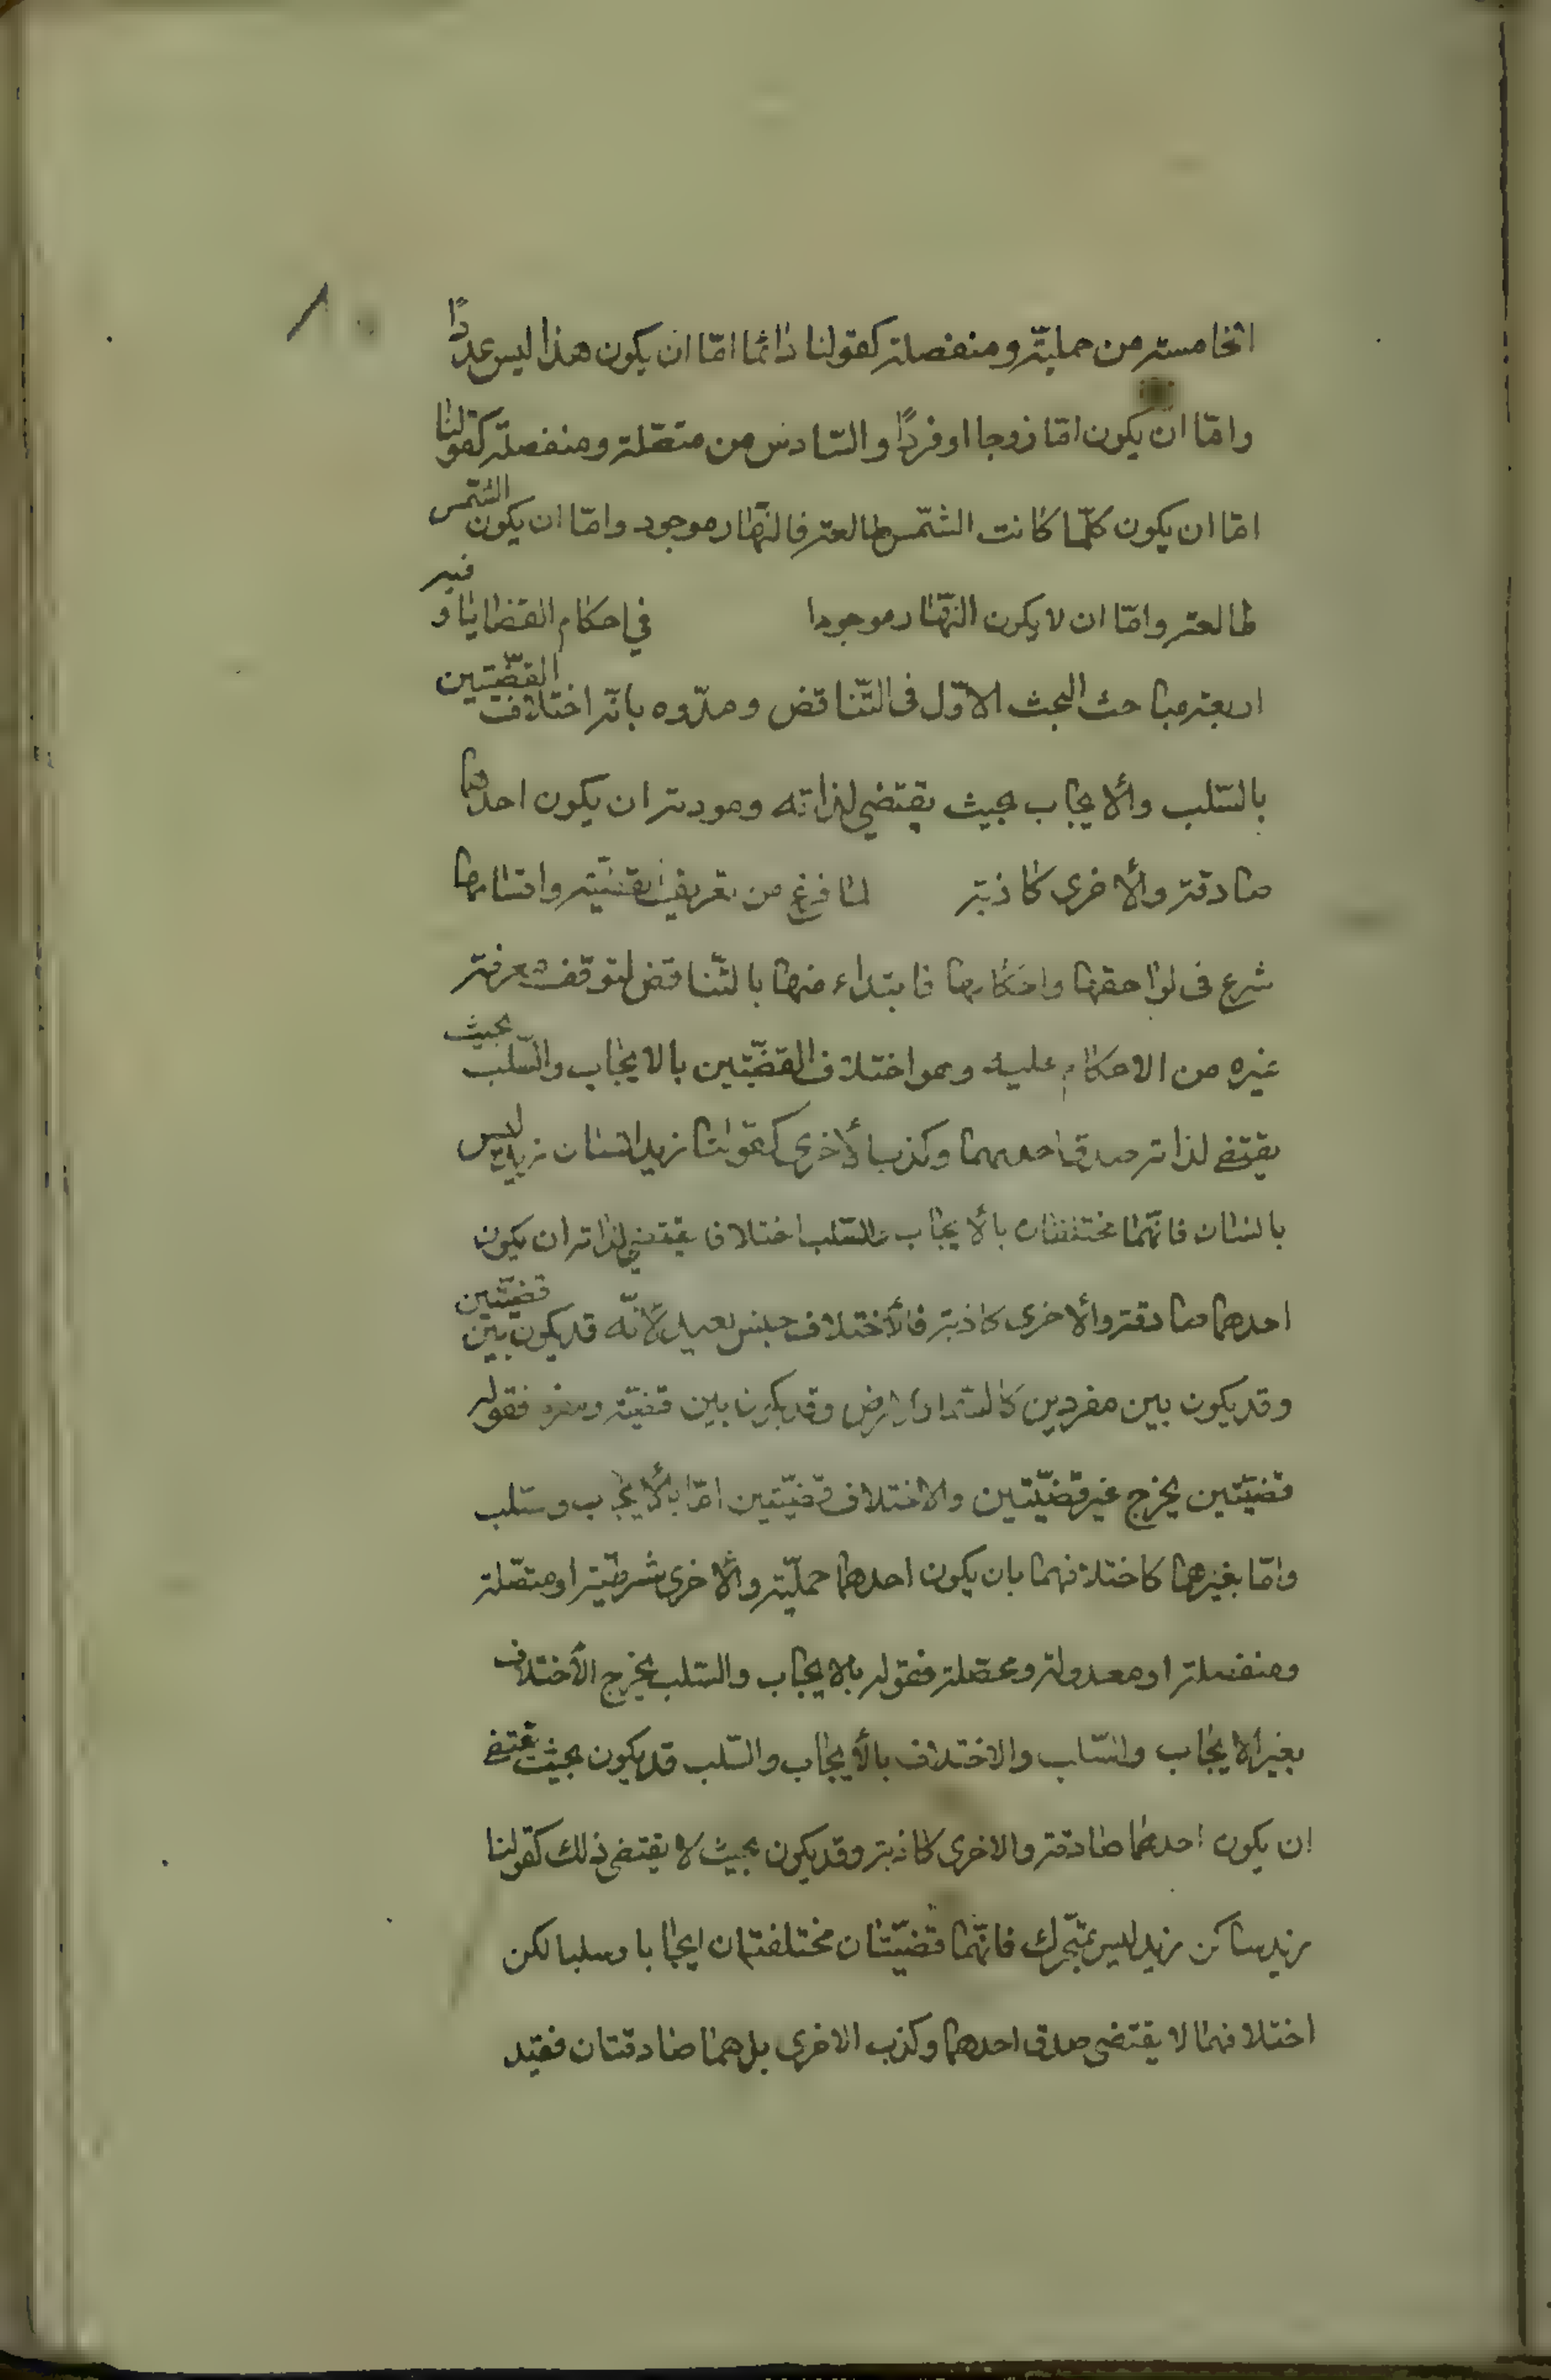 الخامسة من حملیّة ومنفصلة كقولنا دائما امّا ان یكون هذا لیس عددًا
وامّا ان یكون امّا زوجا او فردًا والسّادس من متصّلة ومنفصلة كقولنا
امّا ان یكون كلّما كانت الشّمس طالعة فالنّهار موجود وامّا ان یكون الشّمس
طالعة وامّا ان لا یكون النهّار موجودا في احكام القضایا و فیه
اربعة مباحث البحث الاوّل فی التّناقض وحدّوه بانّه اختلاف القضّیتین
بالسّلب والأیجاب بحیث یقتضي لذاته وهو دته ان یكون احدهما
صادقة والأخری كاذبة لما فرغ من تعریف القضیّة واقسامها
شرع فی لواحقها واحكامها فابتداء منها بالتّناقض لتوقف معرفة
غیره من الاحكام علیه وهو اختلاف القضّیتین بالایجاب والسّلب بحیث
یقتضی لذاته صدق احدیهما وكذب الأخری كقولنا زید انسان زید لیس
بانسان فانّهما مختلفتان بالأیجاب والسّلب اختلافا یقتضي لذاته ان یكون
احدهما صادقة والأخری كاذبة فالأختلاف جنس بعید لأنّه قد یكون بین قضیّتین
وقد یكون بین مفردین كالسّماء والارض وقد یكون بین قضیّة ومفرد فقوله
قضیّتین یخرج غیر قضیّتین والاختلاف قضیّتین امّا بالأیجاب وسّلب
وامّا بغیرهما كاختلافهما بان یكون احدهما حملیّة والأخری شرطیّة او متصّلة
ومنفصلة او معدولة ومحصّلة فقوله بالایجاب والسّلب یخرج الأختلاف
بغیر الایجاب والسّلب والاختلاف بالأیجاب والسّلب قد یكون بحیث یقتضی
ان یكون احدهما صادقة والاخری كاذبة وقد یكون بحیث لا یقتضی ذلك كقولنا
زید ساكن زید لیس بمتحّرك فانّهما قضیّتان مختلفتان ایجابا وسلبا لكن
اختلافهما لا یقتضی صدق احدهما وكذب الاخری بل هما صادقتان فقیّد